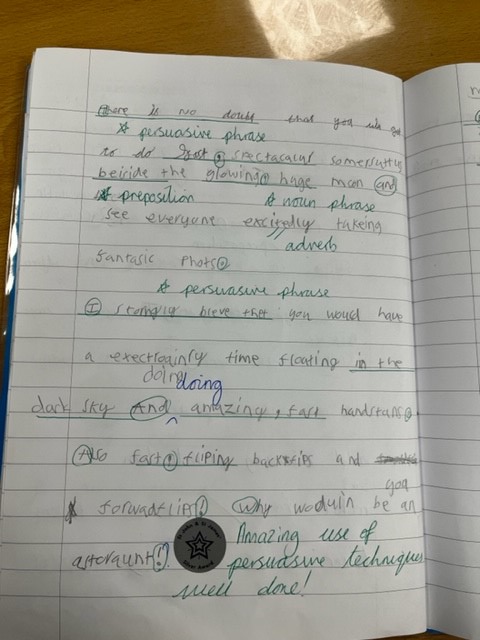 there is no doubt that you will get
☆ persuasive phrase
to do fast, spectacaul somersaults
beicide the glowing, huge moon and
☆ preposition ☆ noun phrase
see everyone excitedly takeing
adverb
fantasic photso
☆ persuasive phrase
I stongly bleve thet you would have
a exectrainly time floating in the
doing doing
dark sky And amazing, fast handstans.
Also fast, fliping backflips and
you
forwadflips! Why wodulin be an
astoraunt!?
Amazing use of
persuasive techniques
well done!